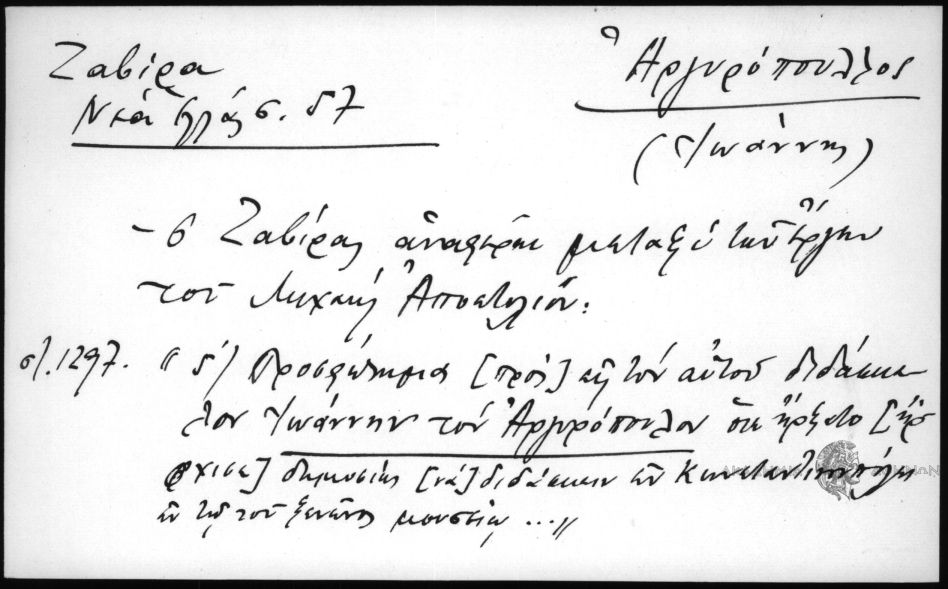 Ζαβίρα
Νέα Ἑλλάς σ. 57
Ἀργυρόπουλλος
(Ἰωάννης)
– ὁ Ζαβίρας ἀναφέρει μεταξύ τῶν ἔργων
τοῦ Μιχαήλ Ἀποστολίου:
"δ') Προσφώνημα [πρὸς] εἰς τόν αὐτοῦ διδάσκα-
λον Ἰωάννην τόν Ἀργυρόπουλον ὅτε ἤρξατο [ἤρ
χισε] δημοσίως [νά] διδάσκειν ἐν Κωνσταντινουπόλει
ἐν τῷ τοῦ ξενῶνος μουσείῳ ...//